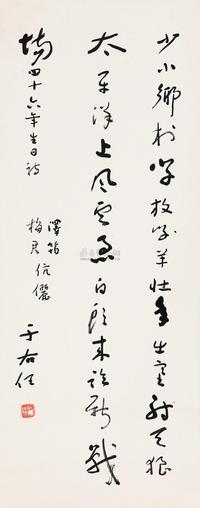 少小鄉村學牧羊壯年出塞射天狼
太平洋上風雲急白頭來詠新戰
場 四十六年生日詩
澤韜
梅君 伉儷
于右任